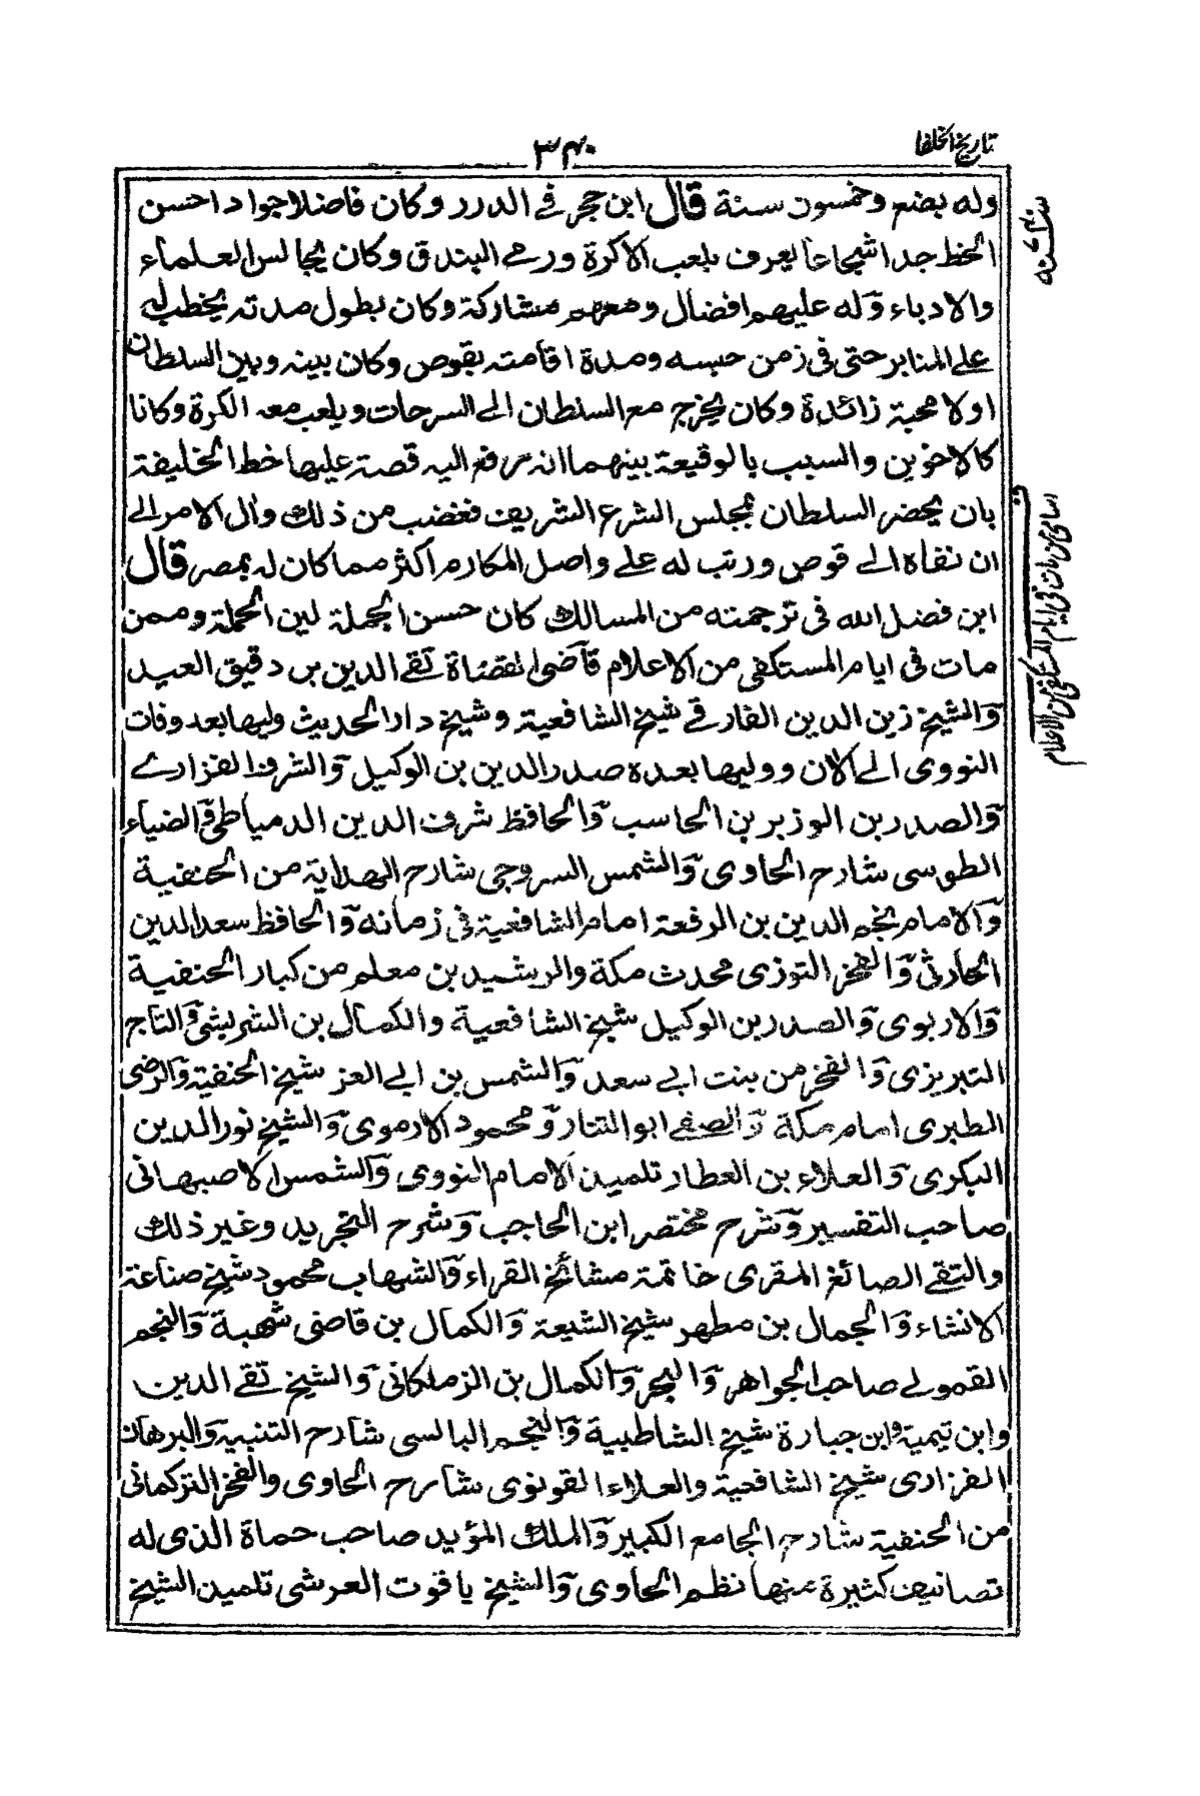 تاريخ الخلفا
٣٤٠
وله بضع وخمسون سنة قال ابن حجر في الدرر وكان فاضلا جوادا حسن
الخط جدا شجاعا يعرف بلعب الاكرة ورمي البندق وكان يجالس العلماء
والادباء وله عليهم افضال ومعهم مشاركة وكان بطول مدته يخطب له
على المنابر حتى فى زمن حبسه ومدة اقامته بقوص وكان بينه وبين السلطان
اولا محبة زائدة وكان يخرج مع السلطان الى السرحات ويلعب معه الكرة وكانا
كالاخوين والسبب بالوقيعة بينهما انه رفع اليه قصة عليها خط الخليفة
بان يحضر السلطان بمجلس الشرع الشريف فغضب من ذلك وال الامر الى
ان نفاه الى قوص ورتب له على واصل المكارم اكثر مما كان له بمصر قال
ابن فضل الله فى ترجمته من المسالك كان حسن الجملة لين الحملة وممن
مات فى ايام المستكفى من الاعلام قاضى القضاة تقي الدين بن دقيق العيد
والشيخ زين الدين الفارقي شيخ الشافعية وشيخ دار الحديث وليها بعد وفات
النووى الى الان ووليها بعده صدر الدين بن الوكيل والشرف الفزاري
والصدر بن الوزير بن الحاسب والحافظ شرف الدين الدمياطي والضياء
الطوسى شارح الحاوى والشمس السروجى شارح الهداية من الحنفية
والامام نجم الدين بن الرفعة امام الشافعية فى زمانه والحافظ سعد الدين
الحارثى والفخر التوزى محدث مكة والرشيد بن معلم من كبار الحنفية
والاربوى والصدر بن الوكيل شيخ الشافعية والكمال بن الشريشى والتاج
التبريزى والفخر من بنت ابي سعد والشمس بن ابي العز شيخ الحنفية والرضى
الطبرى امام مكة والصفي ابو الثنار ومحمود الارموى والشيخ نور الدين
البكرى والعلاء بن العطار تلميذ الامام النووى والشمس الاصبهانى
صاحب التفسير وشرح مختصر ابن الحاجب وشرح التجريد وغير ذلك
والتقي الصائغ المقرى خاتمة مشائخ القراء والشهاب محمود شيخ صناعة
الانشاء والجمال بن مطهر شيخ الشيعة والكمال بن قاضى شهبة والنجم
القمولي صاحب الجواهر والبحر والكمال بن الزملكانى والشيخ تقي الدين
وابن تيمية وابن جبارة شيخ الشاطبية والنجم البالسى شارح التنبيه والبرهان
الفزارى شيخ الشافعية والعلاء القونوى شارح الحاوى والفخر التركمانى
من الحنفية شارح الجامع الكبير والملك المؤيد صاحب حماة الذى له
تصانيف كثيرة منها نظم الحاوى والشيخ ياقوت العرشى تلميذ الشيخ
اسامى من مات فى ايام المستكفى من الاعلام